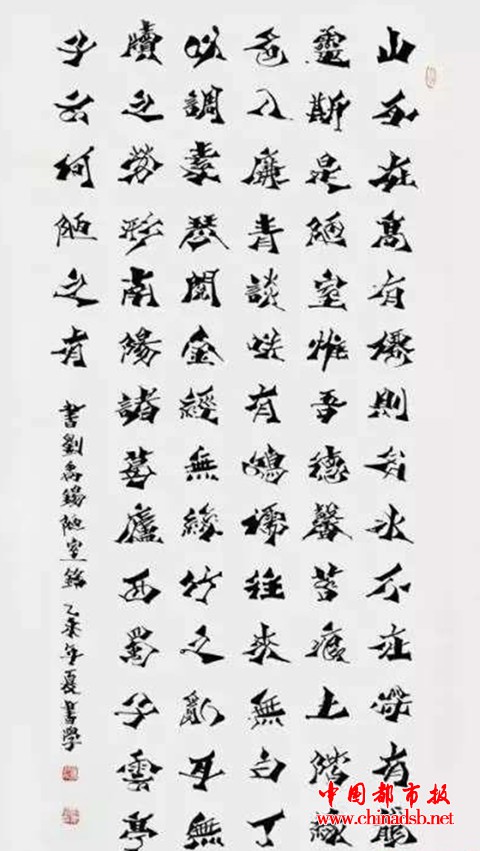 山不在高有僊則名水不在深有龍
靈斯是陋室惟吾德馨苔痕上階緑
色入廉青談笑有鴻儒往來無白丁
以調素琴閱金經無絲竹之亂耳無
牘之勞形南陽諸葛廬西蜀子雲亭
子云何陋之有 書劉禹錫陋室銘乙未年夏書學
中国都市报
www.chinadsb.net